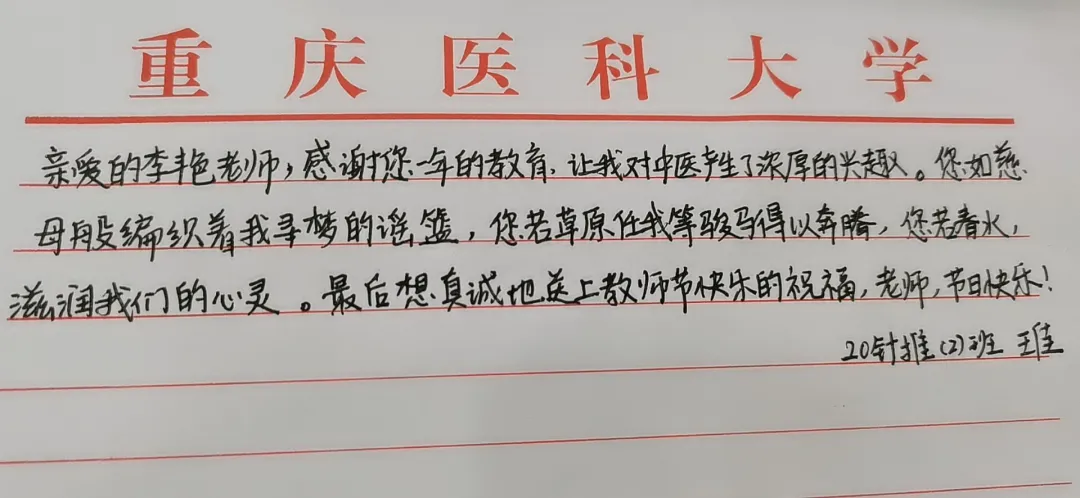 重庆医科大学
亲爱的李艳老师，感谢您一年的教育，让我对中医产生了浓厚的兴趣。您如慈
母般编织着我寻梦的谣篮，您若草原任我等骏马得以奔腾，您若春水，
滋润我们的心灵。最后想真诚地送上教师节快乐的祝福，老师，节日快乐！
20针推(2)班 王佳